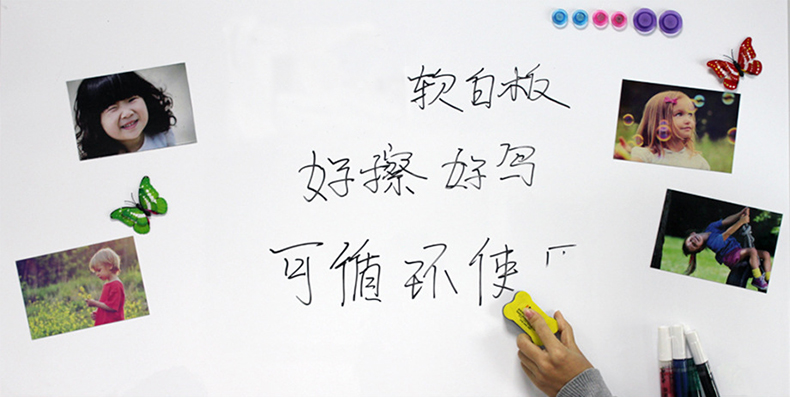 软白板
好擦好写
可循环使